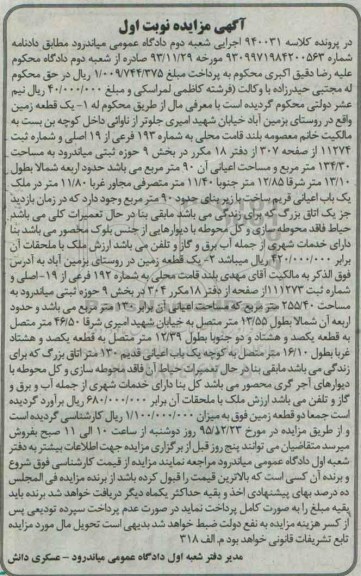 آگهی مزایده نوبت اول
در پرونده کلاسه ۹۴۰۰۳۱ اجرایی شعبه دوم دادگاه عمومی میاندرود مطابق دادنامه
شماره ۹۳۰۹۹۷۱۹۸۴۲۰۰۵۶۳ مورخه ۹۳/۱۱/۲۹ صادره از شعبه دوم دادگاه محکوم
علیه رضا دقیق اکبری محکوم به پرداخت مبلغ ۱/۰۰۹/۷۴۴/۳۷۵ ریال در حق محکوم
له مجتبی حیدرزاده با وکالت (فرشته کاظمی لمراسکی و مبلغ ۴۰/۰۰۰/۰۰۰ ریال نیم
عشر دولتی محکوم گردیده است با معرفی مال از طریق محکوم له ۱- یک قطعه زمین
واقع در روستای بزمین آباد خیابان شهید امیری جلوتر از نانوائی داخل کوچه بن بست به
مالکیت خانم معصومه بلند قامت محلی به شماره ۱۹۲ فرعی از ۱۹ اصلی و شماره ثبت
۱۱۲۷۴ از صفحه ۳۰۷ از دفتر ۱۸ مکرر در بخش ۹ حوزه ثبتی میاندرود به مساحت
۱۳۴/۳۰ متر مربع و مساحت اعیانی آن ۹۰ متر مربع می باشد حدود اربعه شمالا بطول
۱۳/۱۰ متر شرقا ۱۲/۸۵ متر جنوبا ۱۱/۴۰ متر متصرفی مجاور غربا ۱۱/۸۰ متر در ملک
یک باب اعیانی قدیم ساخت با زیربنای حدود ۹۰ متر مربع وجود دارد که در زمان بازدید
جز یک اتاق بزرگ که برای زندگی می باشد مابقی بنا در حال تعمیرات کلی می باشد
حیاط فاقد محوطه سازی و کل محوطه با دیوارهایی از جنس بلوک محصور می باشد بنا
دارای خدمات شهری از جمله آب برق و گاز و تلفن می باشد ارزش ملک با ملحقات آن
برابر ۴۲۰/۰۰۰/۰۰۰ ریال میباشد ۲- یک قطعه زمین در روستای بزمین آباد به آدرس
فوق الذکر به مالکیت آقای مهدی بلند قامت محلی به شماره ۱۹۲ فرعی از ۱۹- اصلی و
شماره ثبت ۱۱۱۲۷۳از صفحه از دفتر ۱۸مکرر ۳۰۴ در بخش ۹ حوزه ثبتی میاندرود به
مساحت ۲۵۵/۴۰ متر مربع که مساحت اعیانی آن برابر ۱۳۰ متر مربع می باشد و حدود
اربعه آن شمالا بطول ۱۳/۵۵ متر متصل به خیابان شهید امیری شرقا ۴۶/۵۰ متر متصل
به قطعه یکصد و هشتاد و دو جنوبا بطول ۱۲/۳۹ متر متصل به قطعه یکصد و هشتاد
غربا بطول ۱۶/۱۰ متر متصل به کوچه یک باب اعیانی قدیم ۱۳۰ متر اتاق بزرگ که برای
زندگی می باشد مابقی بنا در حال تعمیرات حیاط آن فاقد محوطه سازی و کل محوطه با
دیوارهای آجر گری محصور می باشد کل بنا دارای خدمات شهری از جمله آب و برق و
گاز و تلفن می باشد ارزش ملک با ملحقات آن برابر ۶۸۰/۰۰۰/۰۰۰ ریال برآورد گردیده
است جمعا دو قطعه زمین فوق به میزان ۱/۱۰۰/۰۰۰/۰۰۰ ریال کارشناسی گردیده است
و از طریق مزایده در مورخ ۹۵/۲/۲۳ روز دوشنبه از ساعت ۱۰ الی ۱۱ صبح بفروش
میرسد متقاضیان می توانند پنج روز قبل از برگزاری مزایده جهت اطلاعات بیشتر به دفتر
شعبه اول دادگاه عمومی میاندرود مراجعه نمایند مزایده از قیمت کارشناسی فوق شروع
و برنده آن کسی است که بالاترین قیمت را قبول کرده باشد از برنده مزایده فی المجلس
ده درصد بهای پیشنهادی اخذ و بقیه حداکثر یکماه دیگر دریافت خواهد شد برنده باید
بقیه مبلغ را به صورت کامل پرداخت نماید در صورت عدم پرداخت سپرده تودیعی پس
از کسر هزینه مزایده به نفع دولت ضبط خواهد شد بدیهی است تحویل مال مورد مزایده
تابع تشریفات قانونی خواهد بود م. الف ۳۱۸
مدیر دفتر شعبه اول دادگاه عمومی میاندرود – عسکری دانش